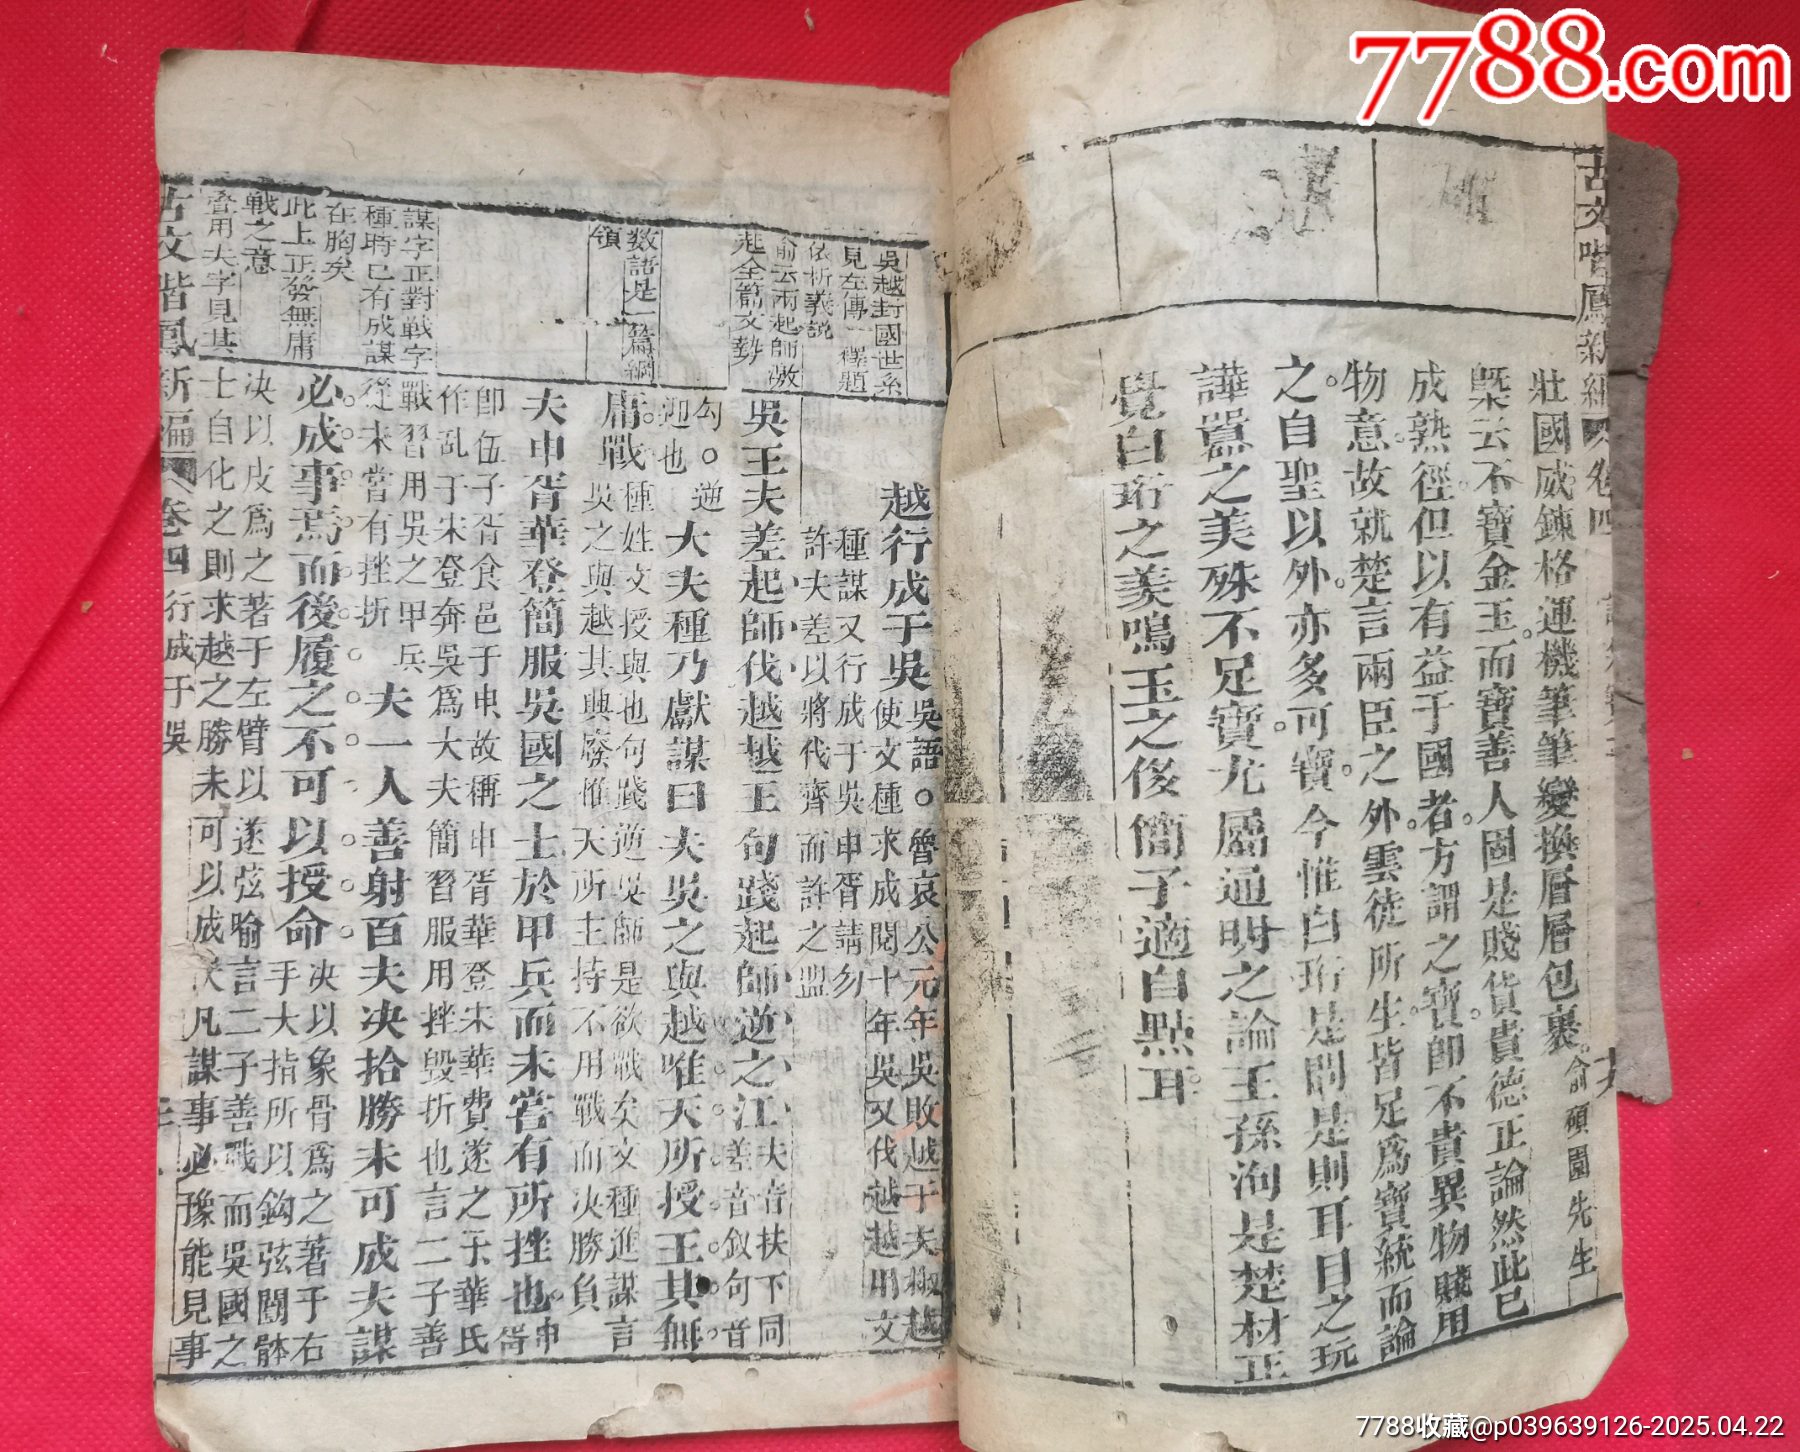 7788.com
古文階鳳新編 卷四
壯國威錬格運機筆筆變換層層包裹 俞碩園先生
槩云不寶金玉而寶善人固是賤貨貴德正論然此已
成熟徑但以有益于國者方謂之寶卽不貴異物賤用
物意故就楚言兩臣之外雲徒所生皆足為寶統而論
之自聖以外亦多可寶今惟白珩是問是則耳目之玩
譁囂之美殊不足寶尤屬通明之論王孫洵是楚材正
覺白珩之美鳴玉之後簡子適自點耳
吳越封國世系
見左傳一擇題
依析義說
俞云兩起師激
起全篇文勢
數語是一篇綱
領
謀字正對戰字
種時已有成謀
在胸矣
此上正發無庸
戰之意
管用夫字見其
越行成于吳 吳語。魯哀公元年吳敗越于夫椒越
使文種求成閱十年吳又伐越越用文
種謀又行成于吳申胥請勿
許夫差以將伐齊而許之盟
吳王夫差起師伐越越王句踐起師逆之江 夫音扶下同
差音釵句音
勾。逆
迎也 大夫種乃獻謀曰夫吳之與越唯天所授王其無
庸戰 種姓文授與也句踐逆吳師是欲戰矣文種進謀言
吳之與越其興廢惟天所主持不用戰而决勝負
夫申胥華登簡服吳國之士於甲兵而未嘗有所挫也 申
胥
卽伍子胥食邑于申故稱申胥華登宋華費遂之子華氏
作乱于宋登奔吳為大夫簡習服用挫毀折也言二子善
戰習用吳之甲兵
從未嘗有挫折 夫一人善射百夫决拾勝未可成夫謀
必成事焉而後履之不可以授命 决以象骨為之著于右
手大指所以鈎弦闓體
决以皮為之著于左臂以遂弦喻言二子善戰而吳國之
士自化之則求越之勝未可以成 夫凡謀事必豫能見事
古文階鳳新編 卷四 行成于吳
7788收藏@p039639126-2025.04.22